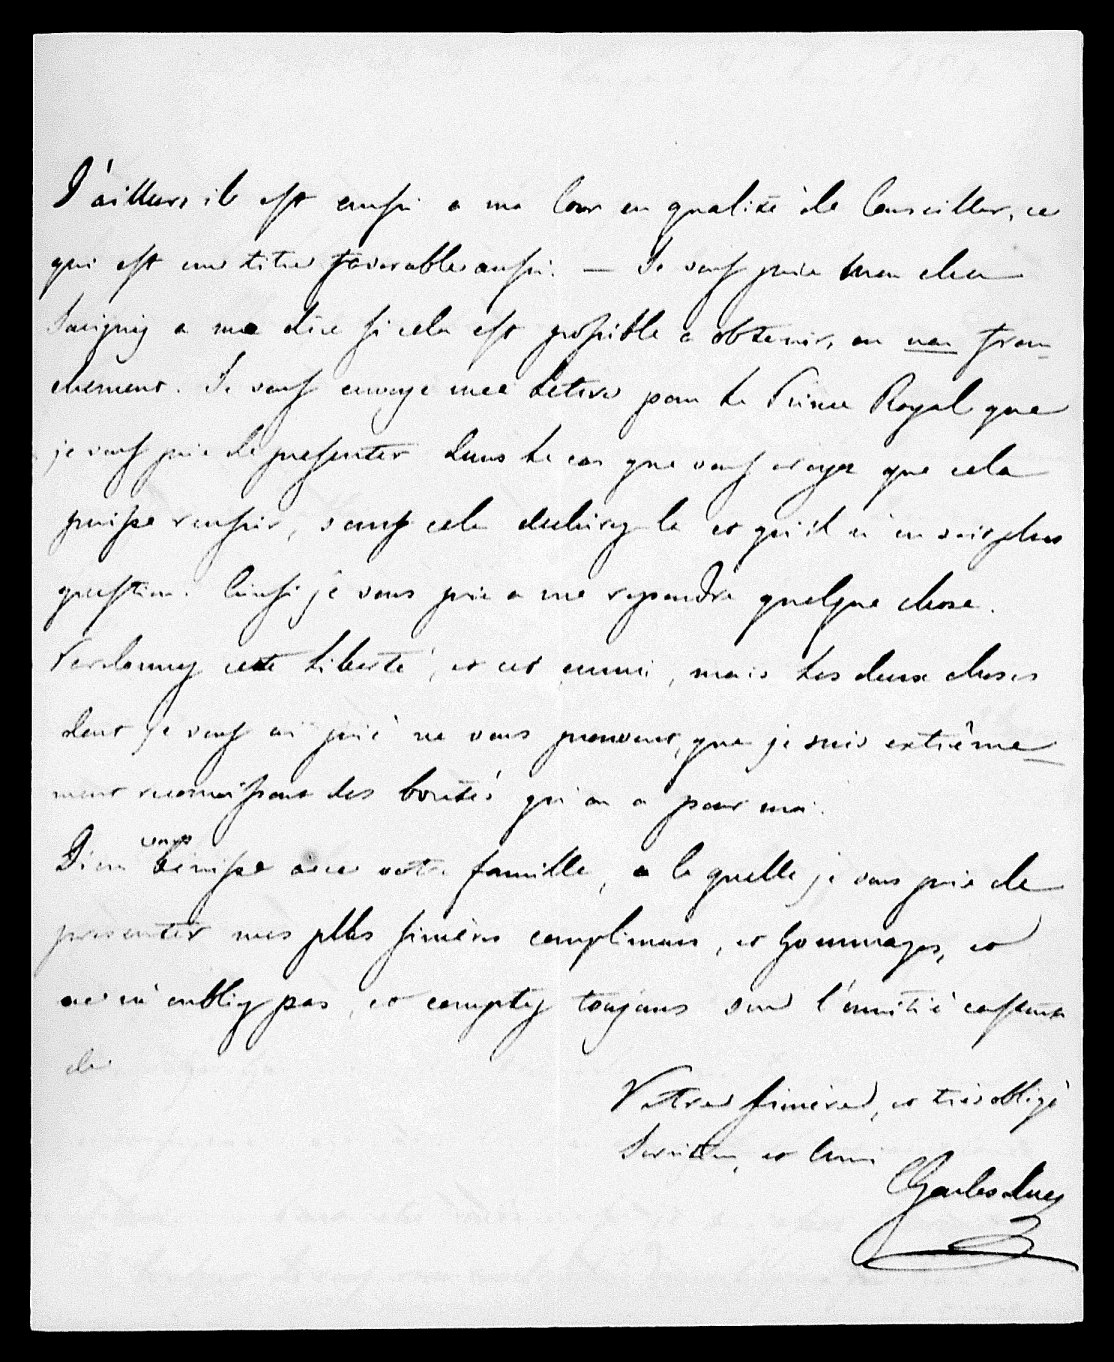 D'ailleurs il est aussi a ma Cour en qualité de Conseiller, ce
qui est une titre favorable aussi. — Je vous prie mon cher
Savigny a me dire si cela est possible a obtenir, ou non fran-
chement. Je vous envoye une Lettre pour le Prince Royal que
je vous prie de presenter dans le cas que vous croyez que cela
puisse reussir, sans cela dechirez la et qu'il n'en soit plus
question. Ainsi je vous prie a me repondre quelque chose.
Perdonnez cette Liberté, et cet ennui, mais les deux choses
dont je vous ai prié ne vous prouvent, que je suis extrême-
ment reconnoissant des bontés qu'on a pour moi.
Dieu vous benisse avec votre famille, a la quelle je vous prie de
presenter mes plus sinceres complimens, et hommages, et
ne m'oubliez pas, et comptez toujours sur l'amitié
de
Votre sincere, et très obligé
Serviteur, et Ami
Charles